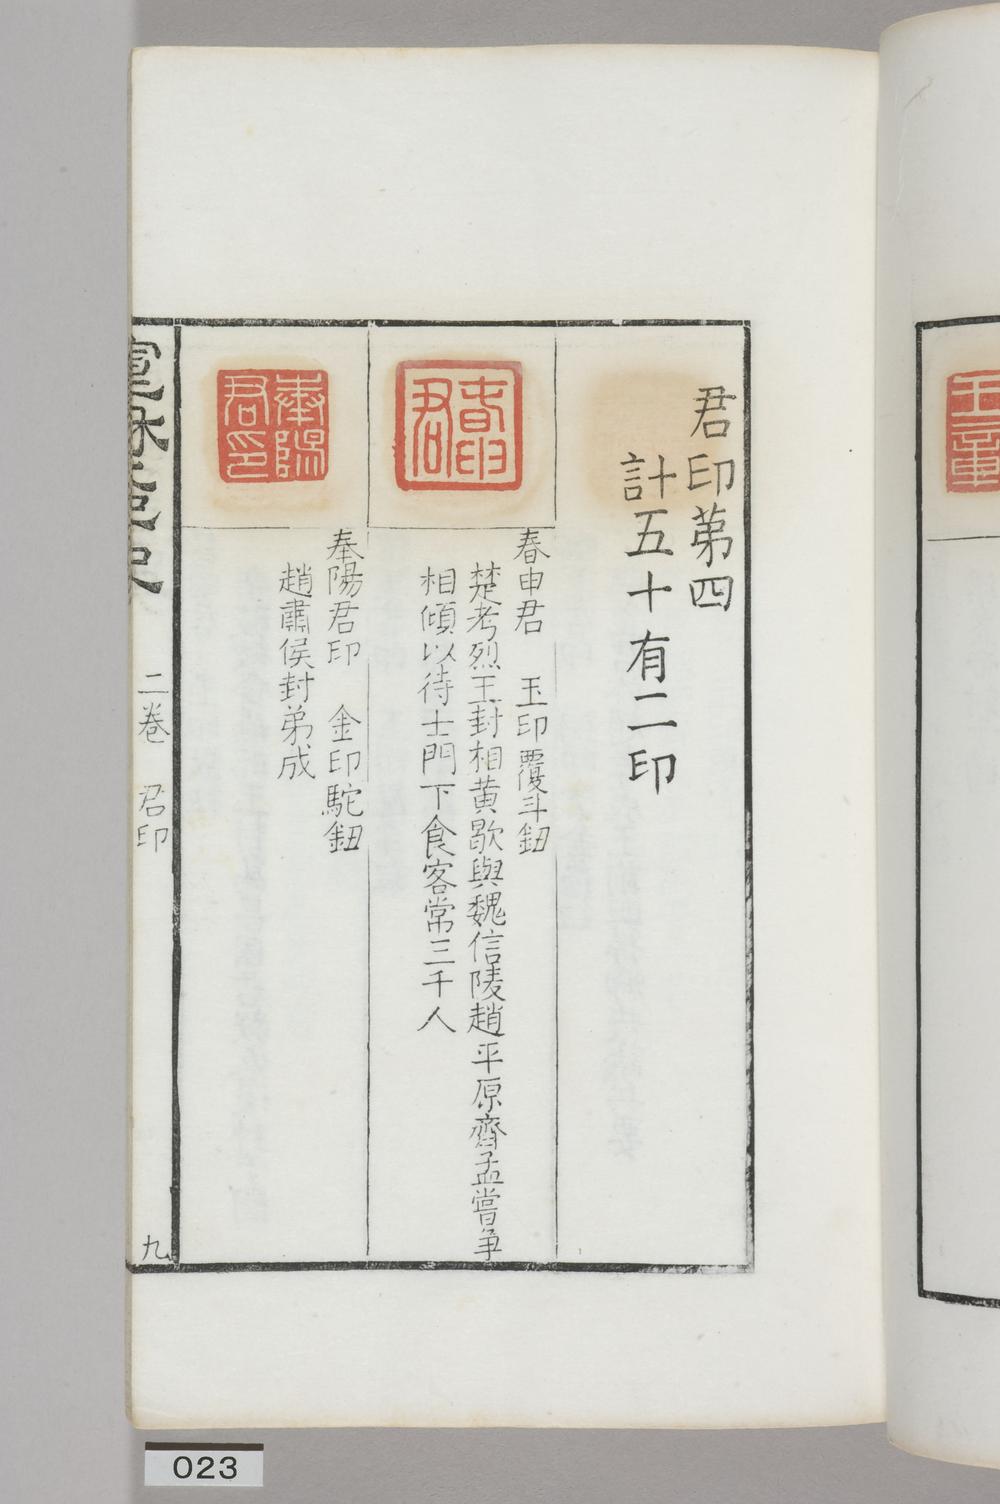 君印第四
計五十有二印
春申君
春申君　玉印覆斗鈕
楚考烈王封相黄歇與魏信陵趙平原齊孟嘗争
相傾以待士門下食客常三千人
奉陽君印
奉陽君印　金印駝鈕
趙肅侯封弟成
二卷　君印
九
023